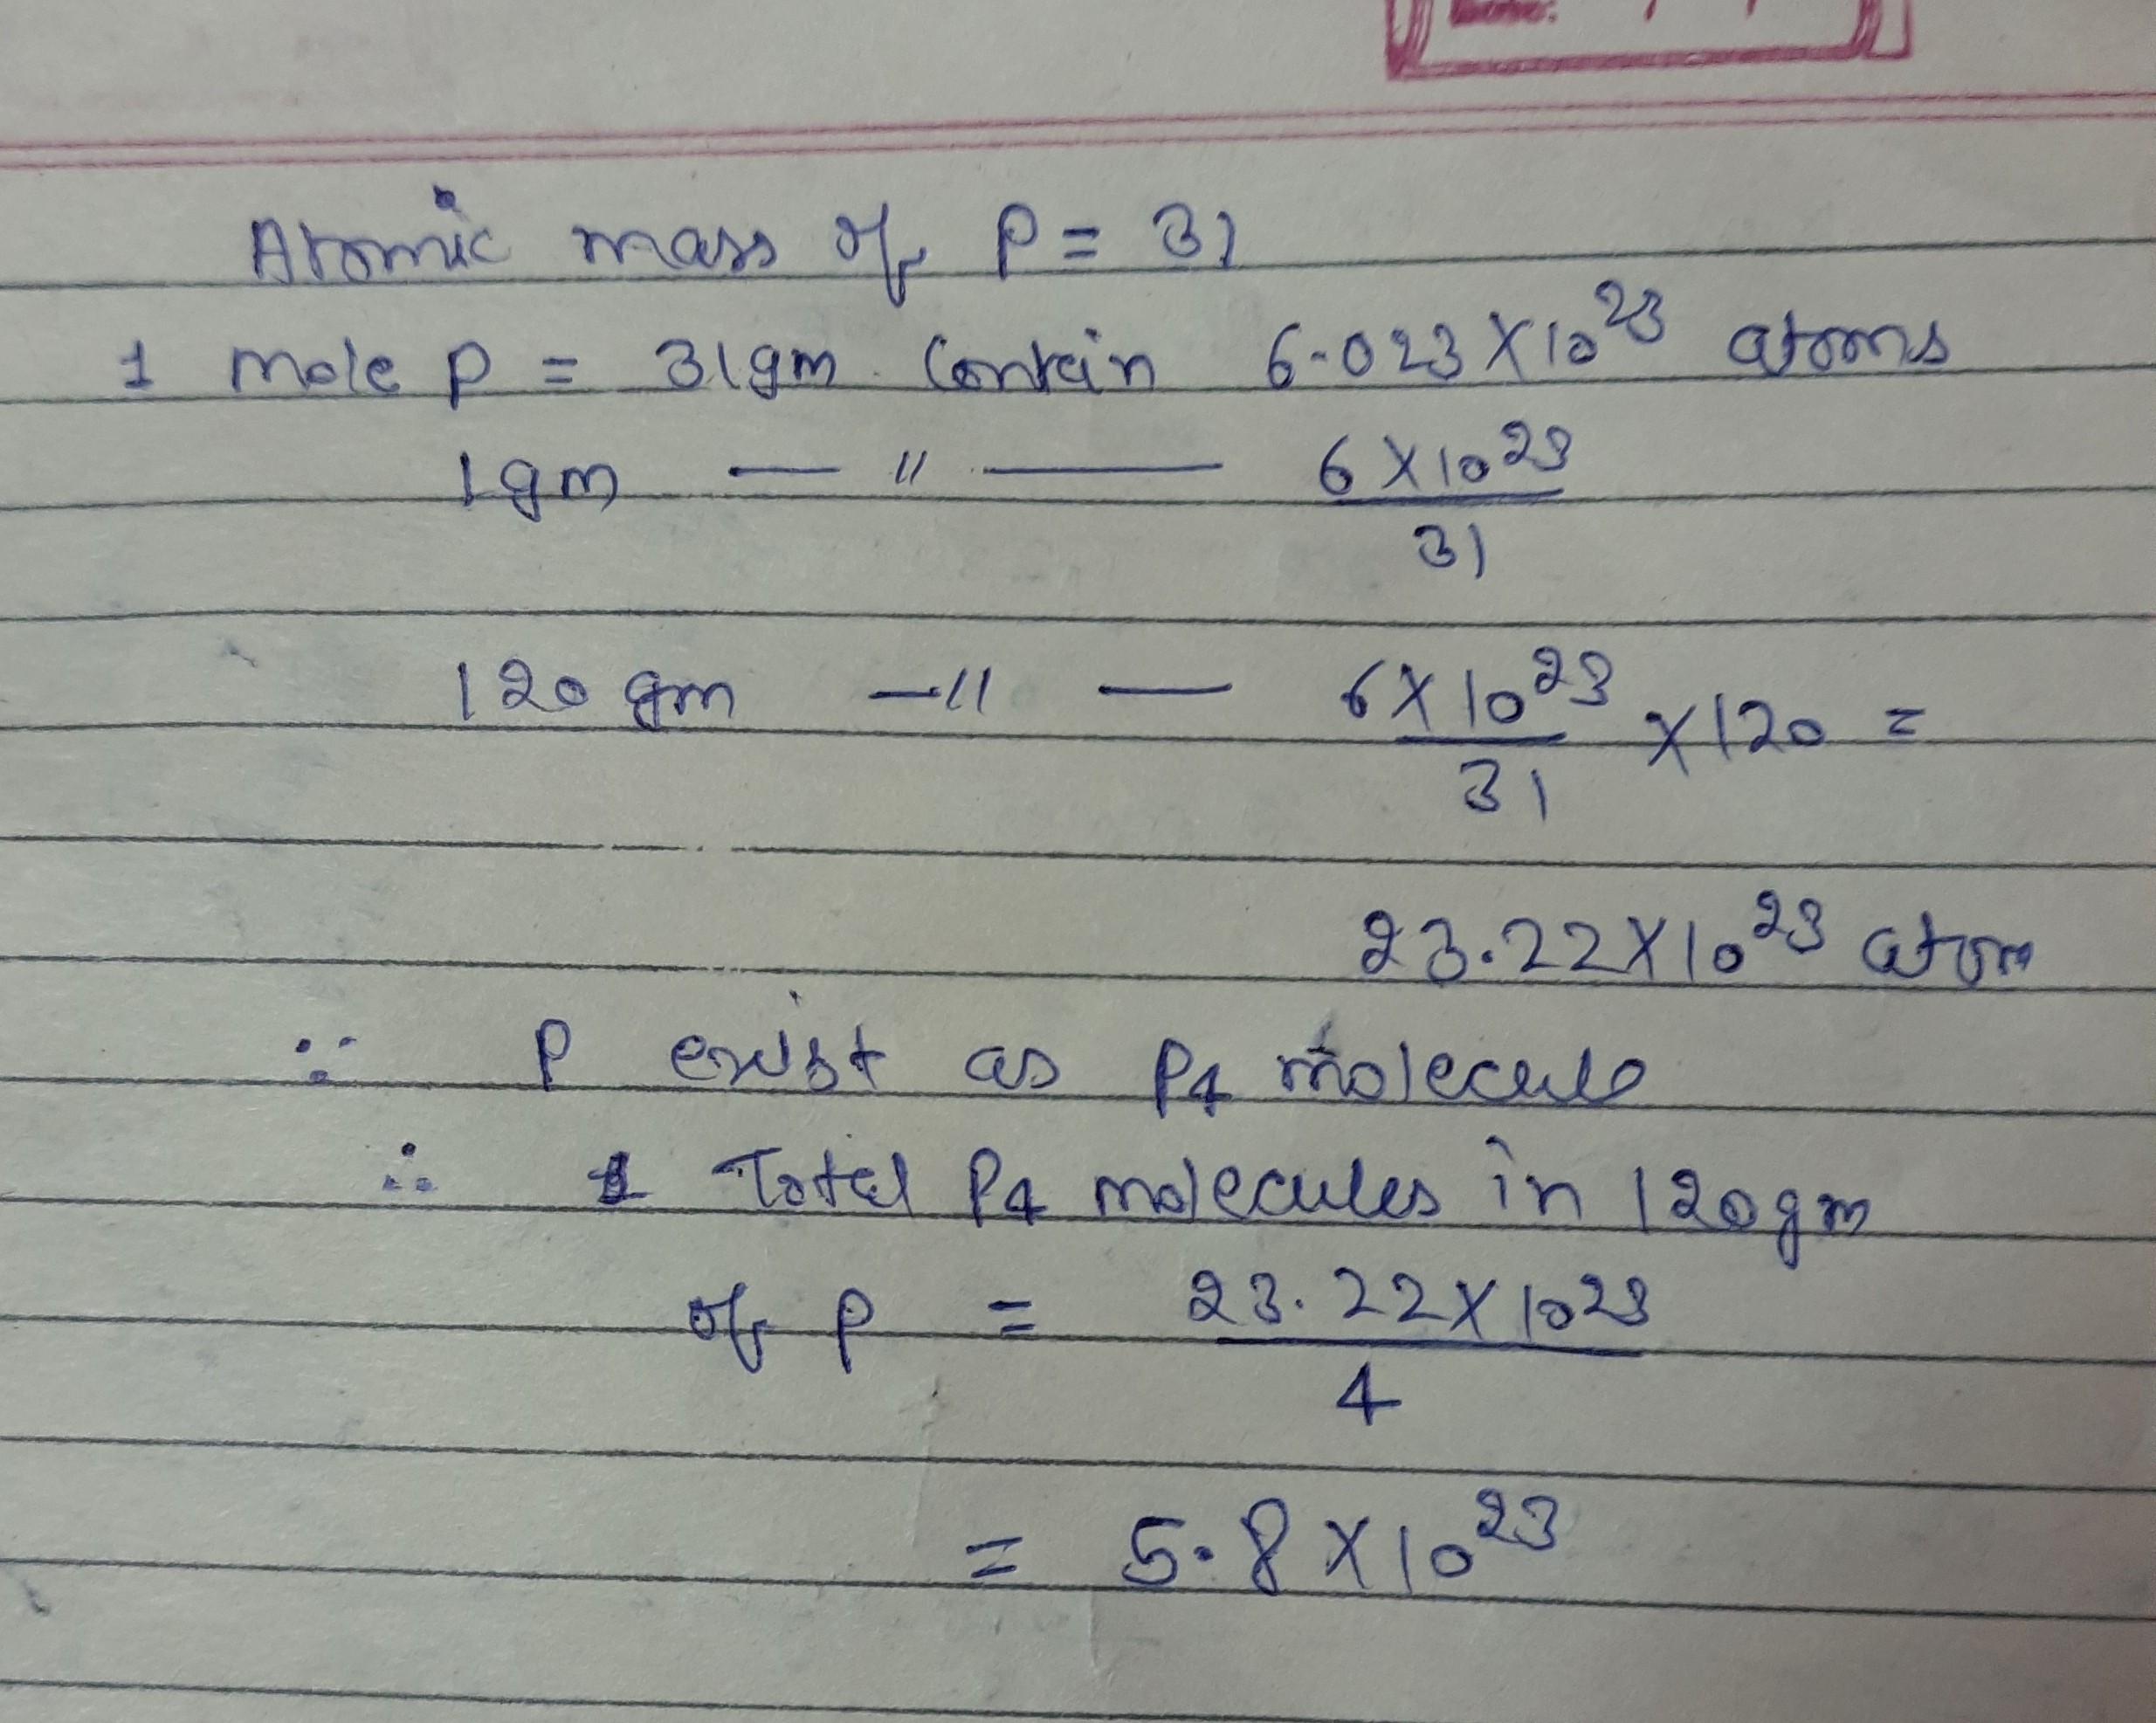 Date:
Atomic mass of P = 31
1 mole P = 31gm. Contain 6.023 X 10²³ atoms
1gm — " — 6 X 10²³ / 31
120 gm — " — 6 X 10²³ / 31 X 120 =
23.22 X 10²³ atom
∵ P exist as P₄ molecule
∴ Total P₄ molecules in 120gm
of P = 23.22 X 10²³ / 4
= 5.8 X 10²³